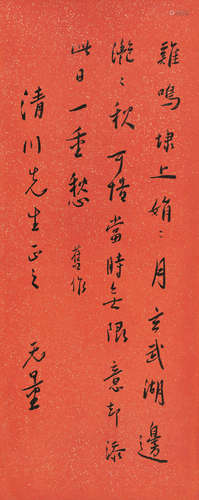 雞鳴埭上娟〻月玄武湖邊
灧〻秋可惜當時無限意却添
此日一重愁 舊作
清川先生正之 无量